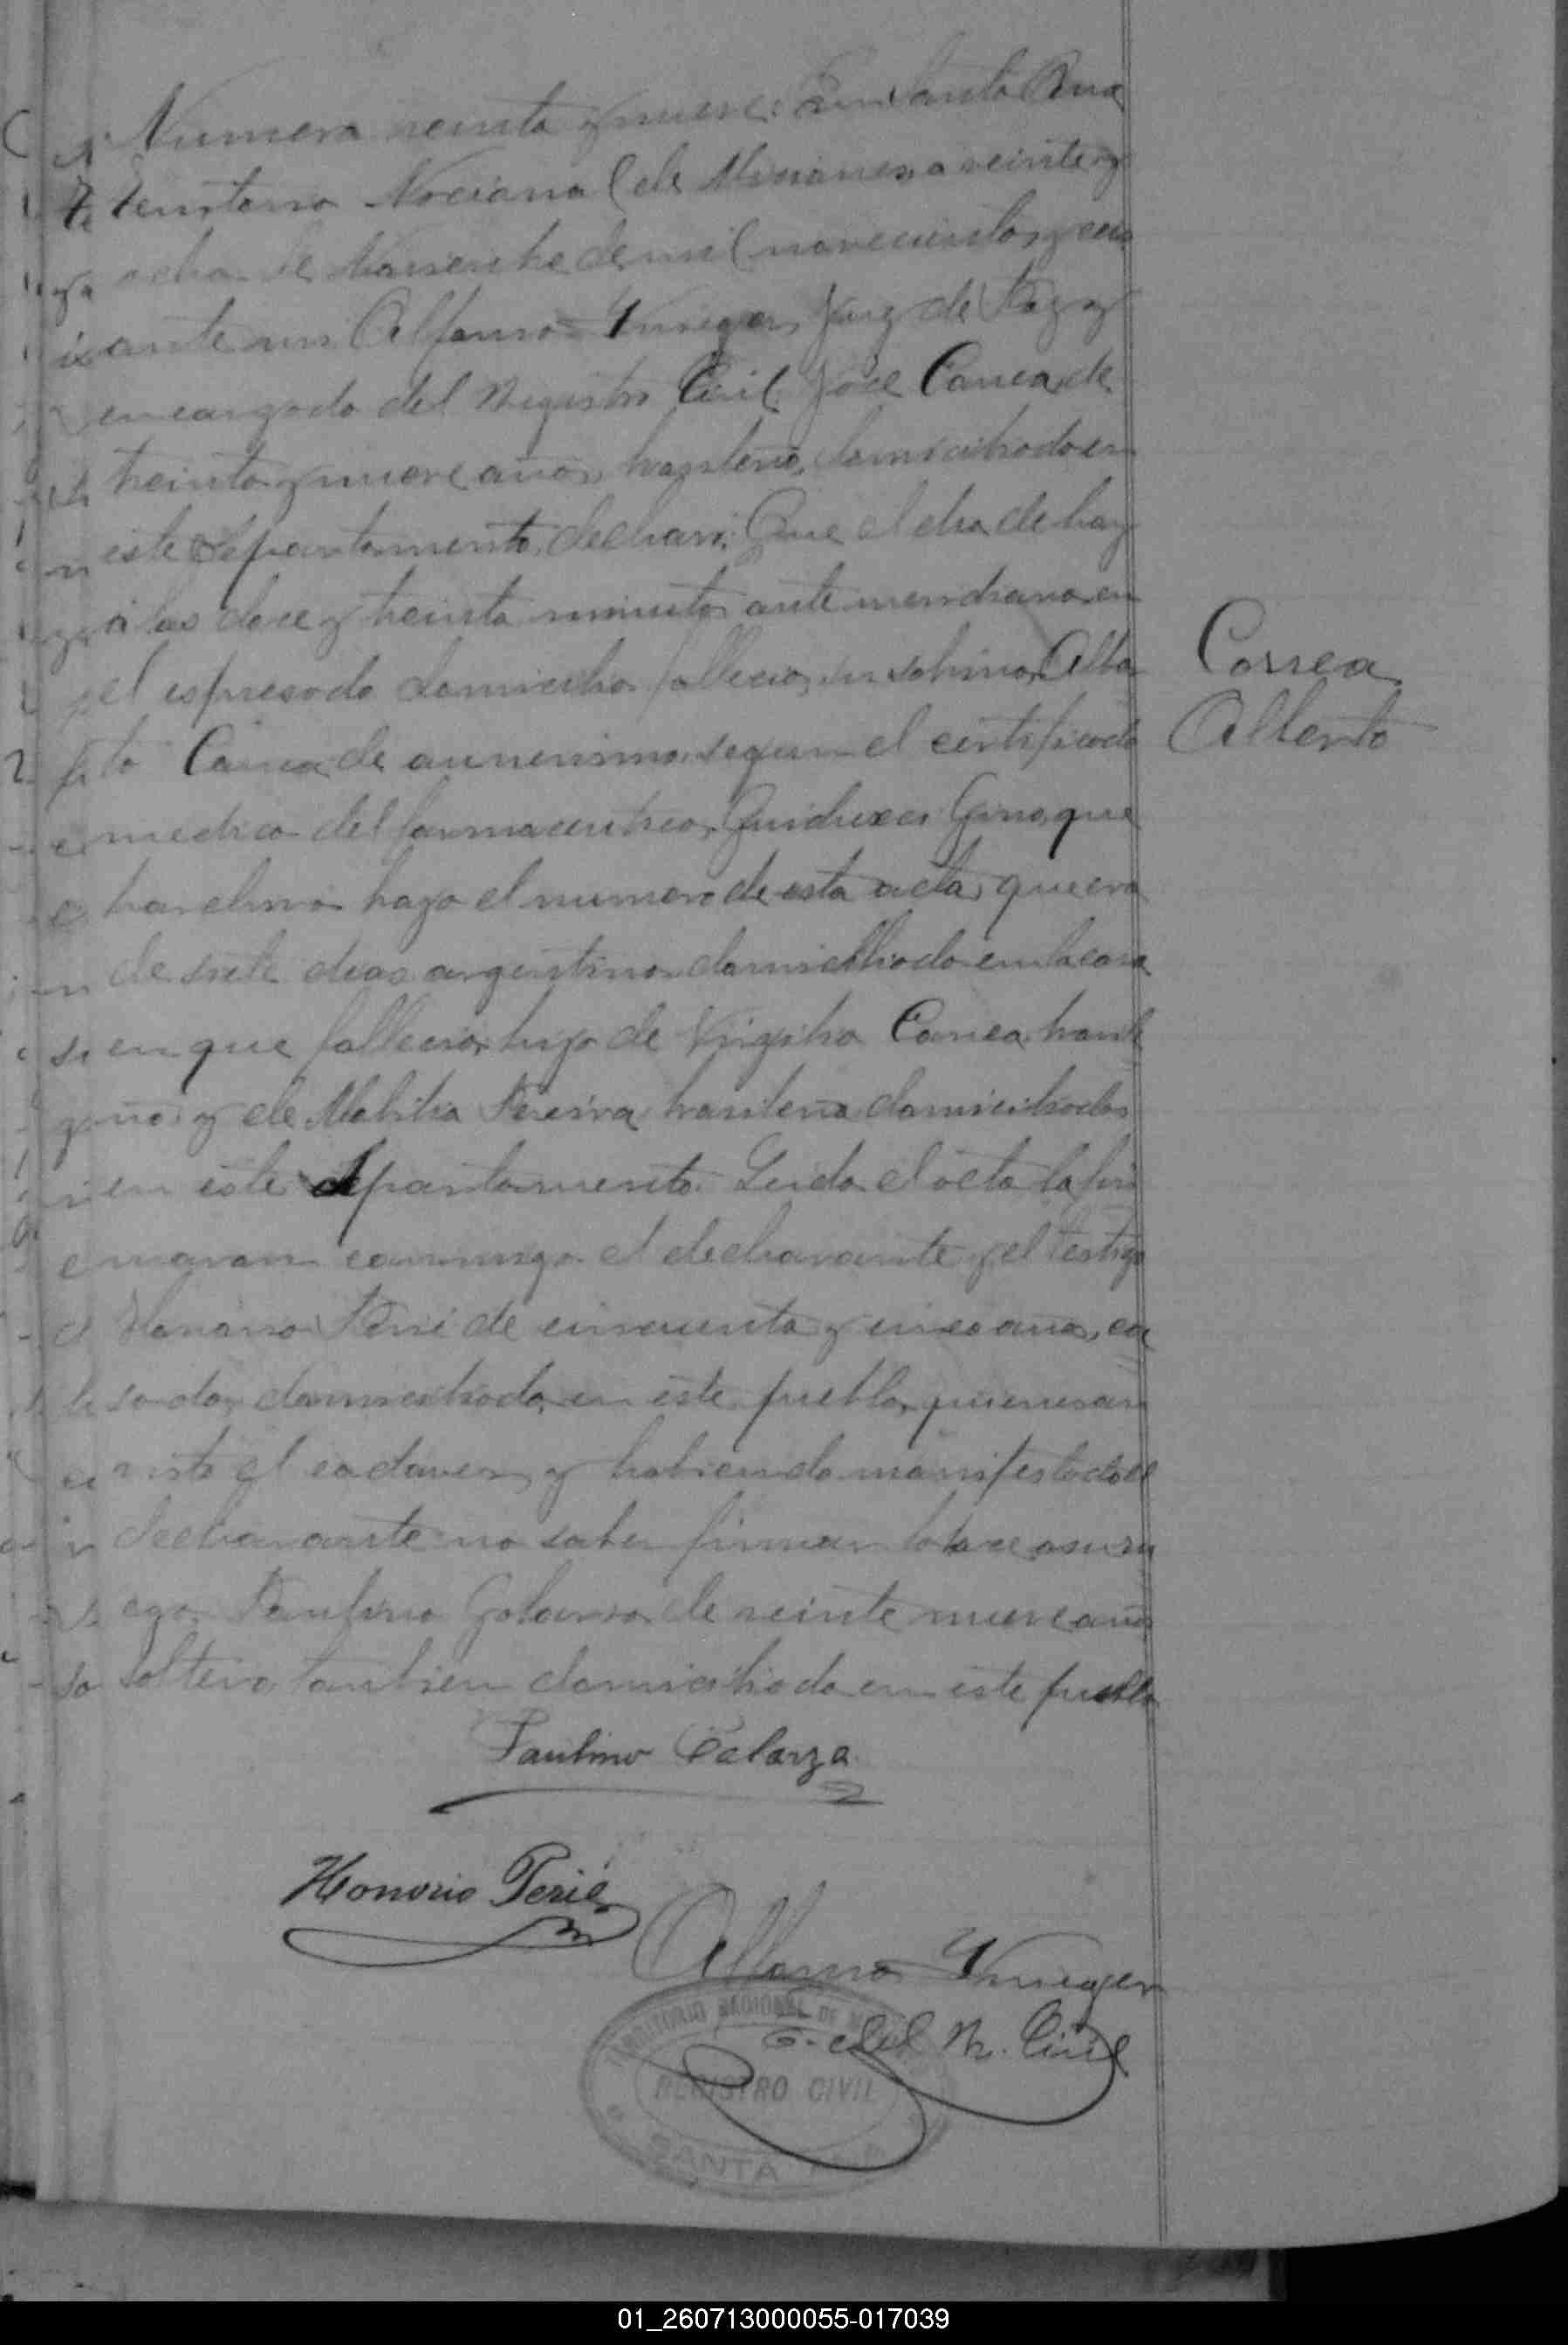 Numero veinta y nueve: En Santa Ana
Territorio Nacional de Misiones, a veinte y
ocho de Noviembre de mil novecientos y
ante mi Alfonso Kruger, Juez de Paz y
encargado del Registro Civil, José Correa, de
treinta y nueve años, brasileño, domiciliado en
este Departamento, declaró: Que el dia de hoy
a las doce y treinta minutos ante meridiano, en
el espresado domicilio fallecio, su sobrino, Alber
to Correa, de aunerismo, segun el certificado
medico del farmaceutico, que
archivo bajo el numero de esta acta, que era
de siete dias argentino domicilliado en la casa
en que fallecio, hijo de Virgilio Correa, brasil
eño, y de Mabilia Pereira, brasilena domiciliados
en este departamento. Leida el acta la fir
maron conmigo el declarante y el testigo
Honorio Perié de cincuenta y cinco años, ca
sado, domiciliado, en este pueblo, quienes an
visto el cadaver, y habiendo manifestado el
declarante no saber firmar lo hace a su ru
ego, Paulino Galarza, de veinte nueve años
soltero, tambien domiciliado en este pueblo
Correa
Alberto
Paulino Galarza
Honorio Perié
Alfonso Kruger
E. del R. Civil
TERRITORIO NACIONAL DE
REGISTRO CIVIL
SANTA ANA
01_260713000055-017039